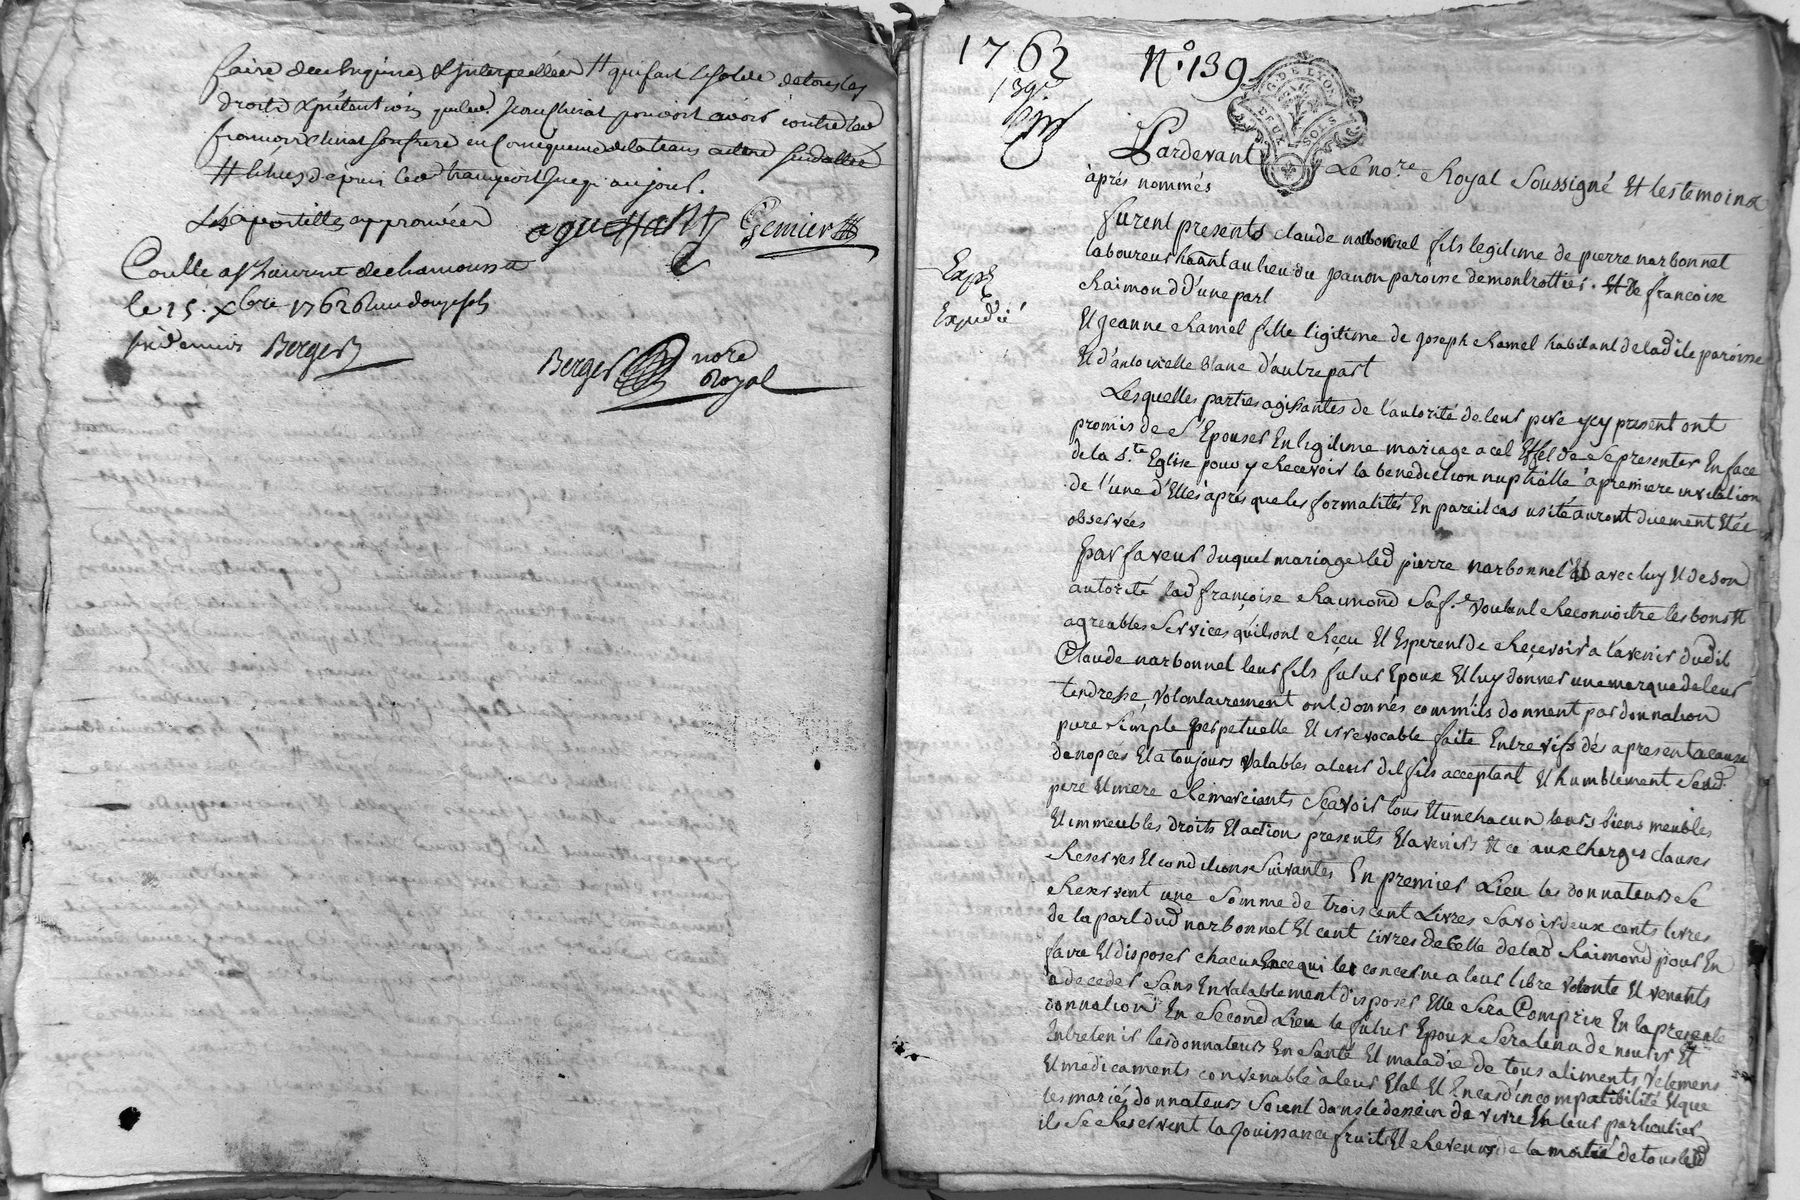 faire de ce enquis & Interpellés # qui fait le solde de tous les
droits & prétentions que led. Jean Chirat pouvoit avoir contre led
françois Chirat son frere en Consequence de la
# Echus depuis led transport jusqu'aujourd.
Les apostilles approuvées Gemier
Conllé a St Laurent de chamousset
le 15. Xbre 1762 Reçu douze sols
six deniers Berger
Berger nore
Royal
1762 N.° 139
139e
G. DE LYON
DEUX SOLS
Pardevant Le no.re Royal Soussigné Et les temoins
aprés nommés
furent presents Claude narbonnel fils legitime de pierre narbonnet
laboureur hãant au lieu du panon paroisse de montrottier. Et de francoise
Raimond D'une part
Exp.
Expedié
Et Jeanne Ramel fille legitime de Joseph Ramel habitant de ladite paroisse
Et d'antoinelle Blanc d'autre part
Lesquelles parties agissantes de l'autorité de leur pere ycy present ont
promis de s'Epouser En legitime mariage a cet Effet de se presenter En face
de la s.te Eglise pour y Recevoir la benediction nuptialle a premiere invitation
de l'une d'Elles aprés que les formalités En pareil cas usité auront duement Eteé
observées
En faveur duquel mariage led pierre narbonnel Et avec luy Et de son
autorité lad françoise Raimond sa f.e voulant Reconnoitre les bons Et
agreables Services quils ont Reçu Et Esperent de Recevoir a l'avenir dudit
Claude narbonnel leur fils futur Epoux Et luy donner une marque de leur
tendresse, volontairement ont donnés comm'ils donnent par donnation
pure simple perpetuelle Et irrevocable faite Entre vifs dés apresent a cause
de nopces Et a toujours valables a leur dit fils acceptant Et humblement sesd.
pere Et mere Remerciants sçavoir tous Et un chacun leurs biens meubles
Et immeubles droits Et actions presents Et avenirs Et ce aux charges clauses
Reserves Et conditions Suivantes En premier Lieu les donnateurs se
Reservent une somme de trois cent Livres savoir deux cents livres
de la part dud narbonnet Et cent livres de Celle de lad Raimond pour En
faire Et disposer chacun En ce qui les concerne a leur libre volonté Et venants
a deceder sans En valablement disposer Elle sera Comprise En la presente
donnation En Second Lieu le futur Epoux sera tenu de nourir Et
Entretenir les donnateurs En santé Et maladie de tous aliments, vetemens
Et medicaments convenable à leur Etat Et En cas d'incompatibilité Et que
les mariés donnateurs soient dans le dessein de vivre En leur particulier
ils se Reservent la Jouissance fruits Et Revenus de la moitié de tous lesd